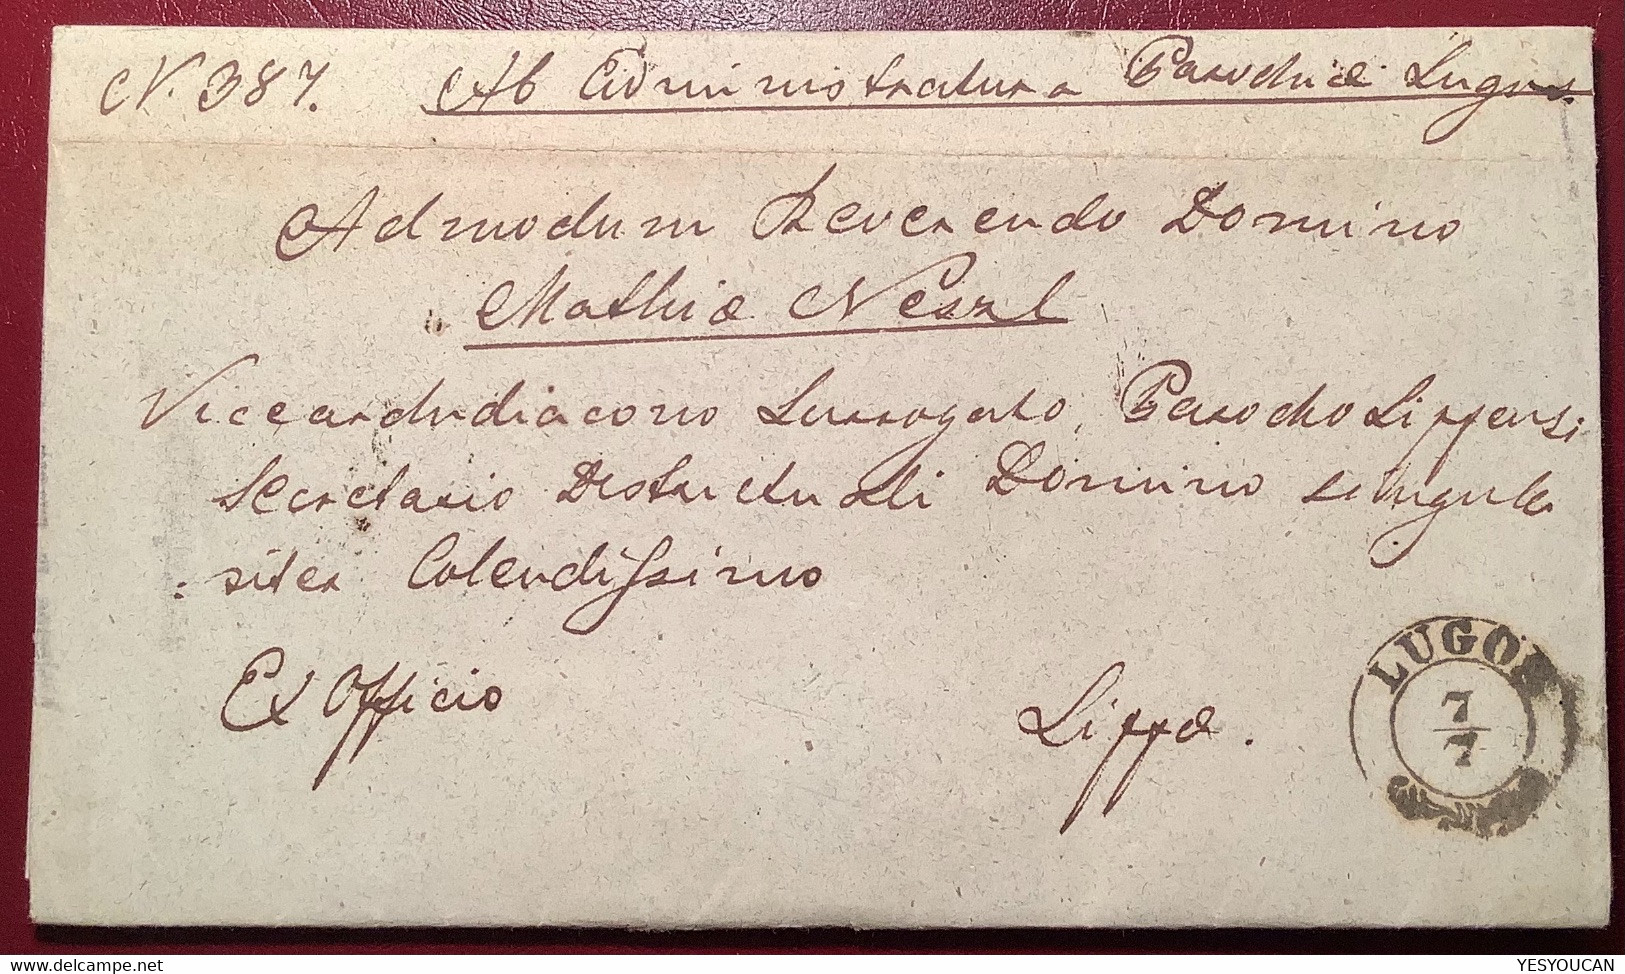 N. 387. Ab Administratura Parochiæ Lugos.
Admodum Reverendo Domino
Mathiæ Neszl
Viccearchidiacono Surrogato, Parocho Lippensi
Secretario Districtuali Domino singula
riter Colendissimo
Ex Officio
Lippæ.
LUGOS
7/7
YESYOUCAN